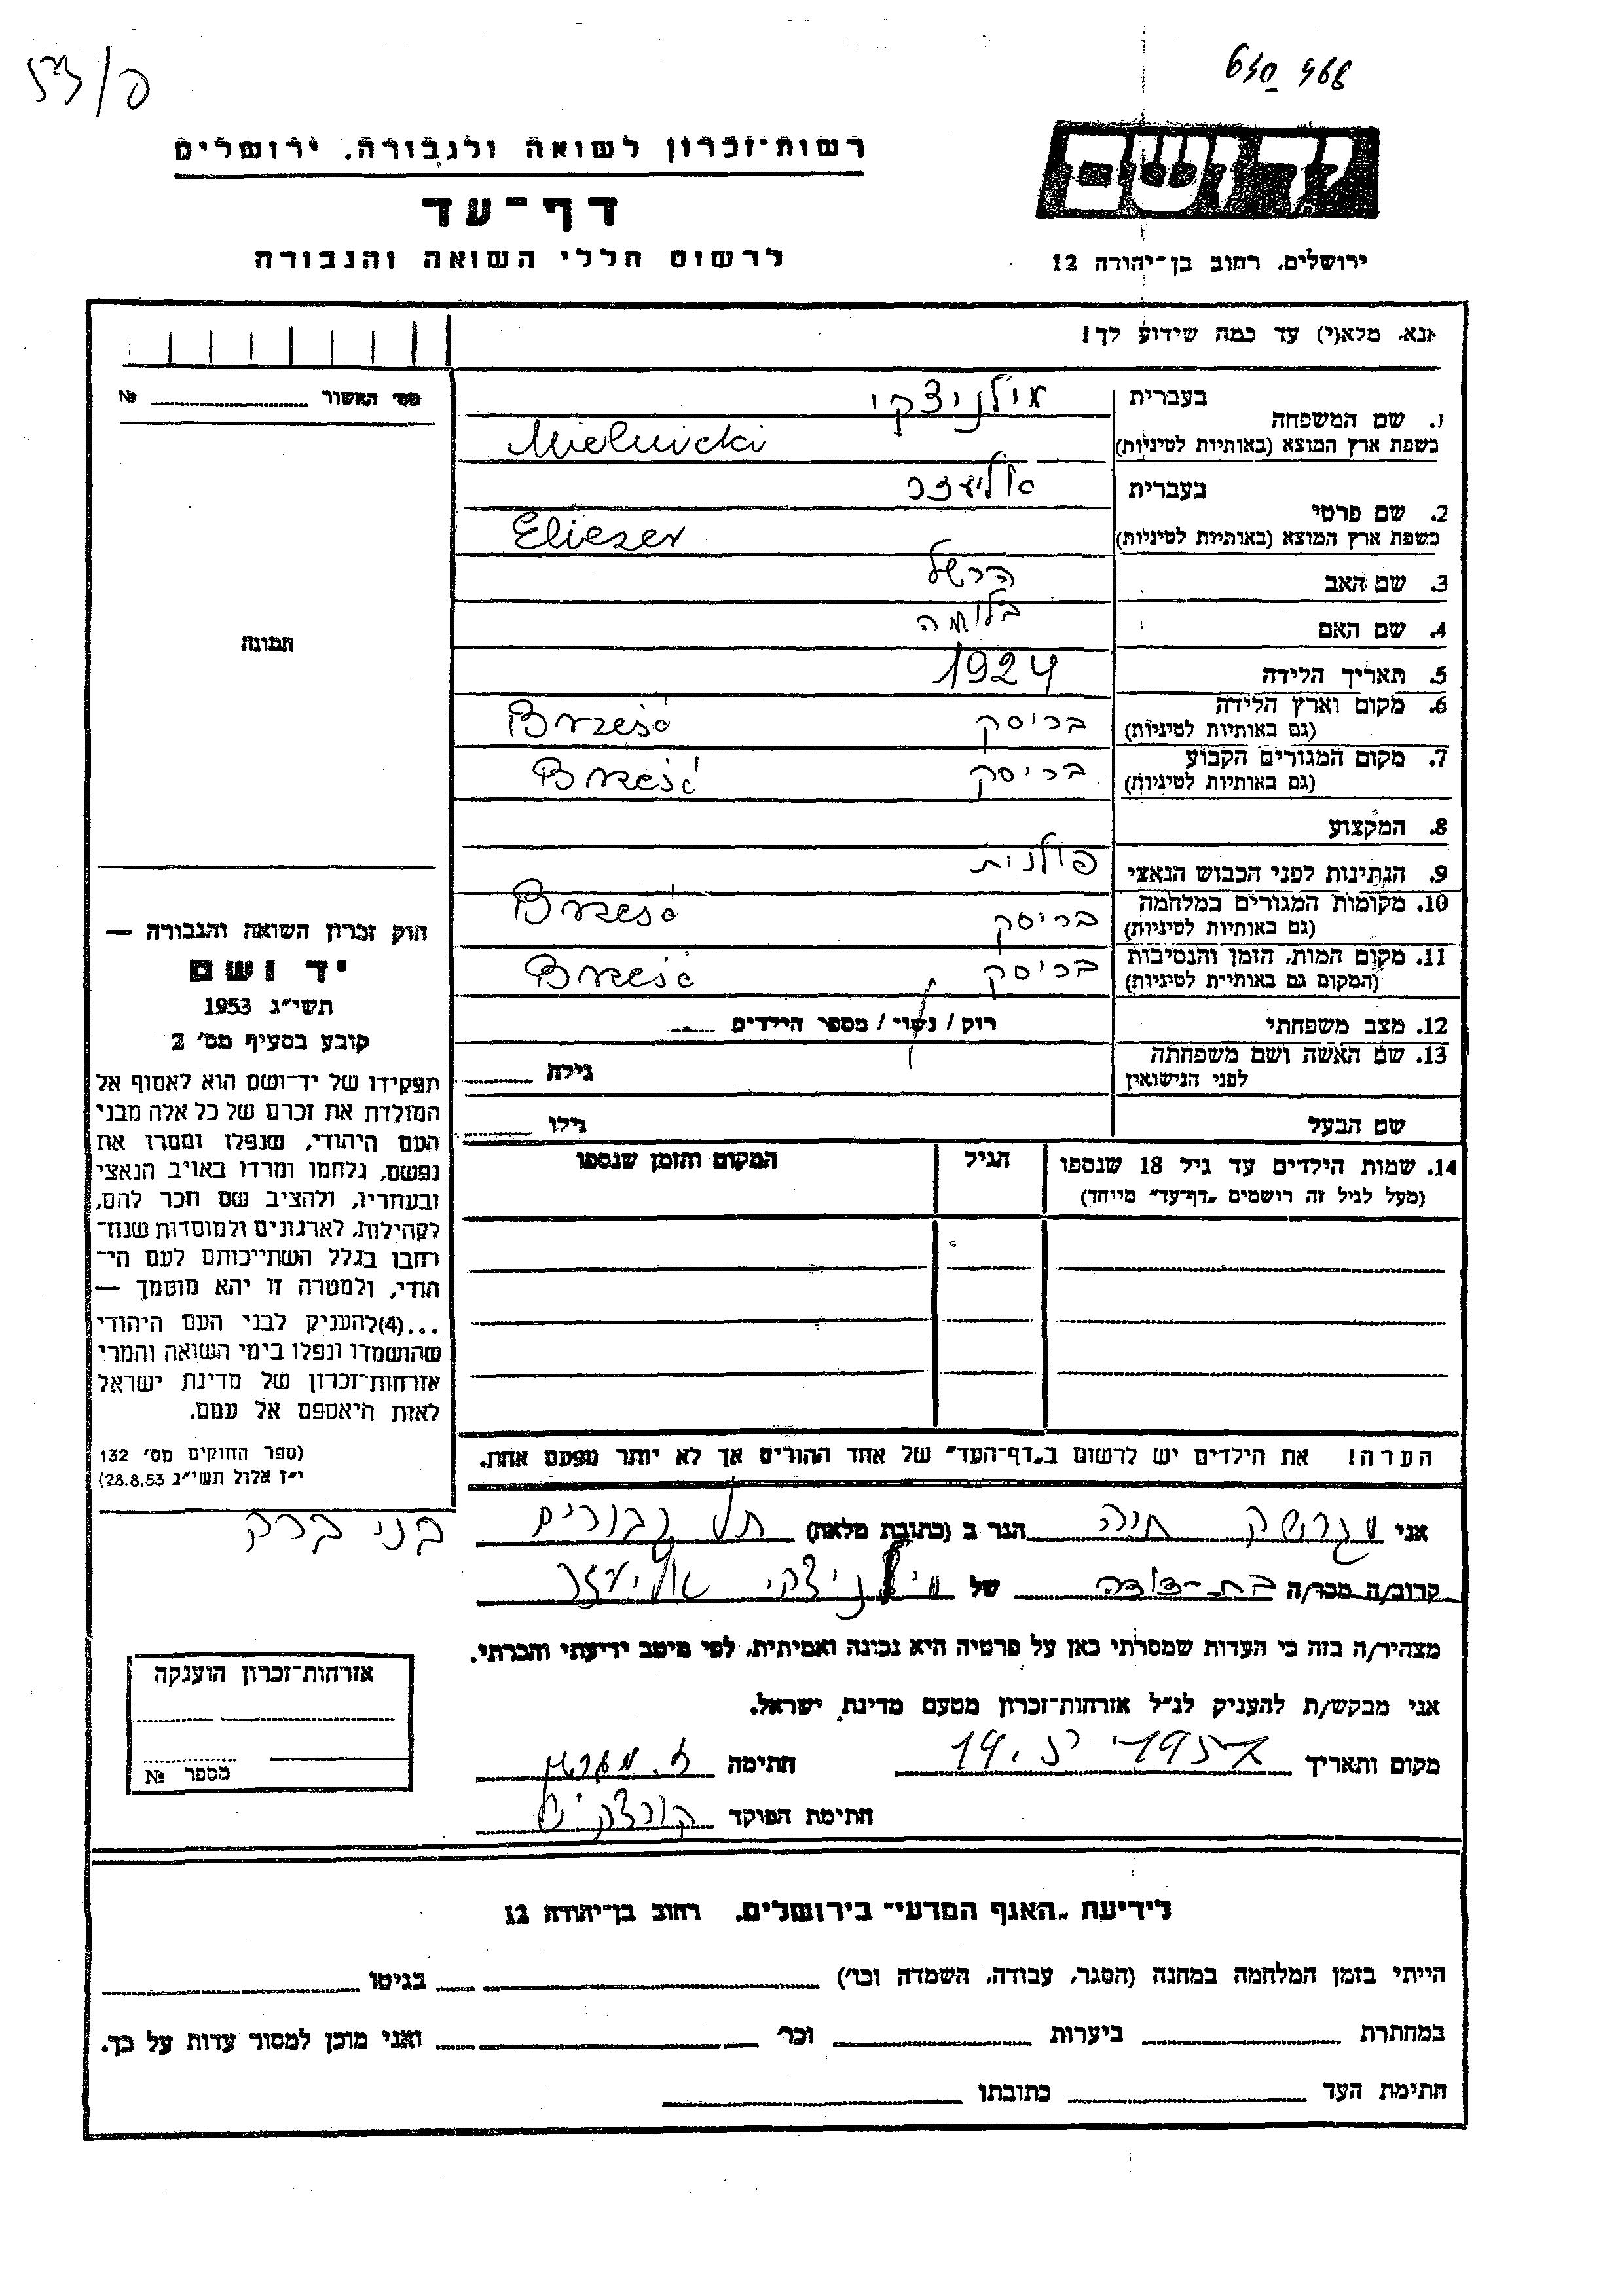 רשות־זכרון לשואה ולגבורה, ירושלים
דף־עד
לרשום חללי השואה והגבורה
ירושלים, רחוב בן־יהודה 12
אנא, מלא(י) עד כמה שידוע לך!
מס׳ האשור № 
1. שם המשפחה בעברית מילניצקי
בשפת ארץ המוצא (באותיות לטיניות) Mielnicki
2. שם פרטי בעברית אליעזר
בשפת ארץ המוצא (באותיות לטיניות) Eliezer
3. שם האב הרשל
4. שם האם בלומה
5. תאריך הלידה 1924
6. מקום וארץ הלידה (גם באותיות לטיניות) בריסק Brześć
7. מקום המגורים הקבוע (גם באותיות לטיניות) בריסק Brześć
8. המקצוע
9. הנתינות לפני הכבוש הנאצי פולנית
10. מקומות המגורים במלחמה (גם באותיות לטיניות) בריסק Brześć
11. מקום המות, הזמן והנסיבות (המקום גם באותיות לטיניות) בריסק Brześć
12. מצב משפחתי רוק / נשוי / מספר הילדים
13. שם האשה ושם משפחתה לפני הנישואין גילה
שם הבעל גילו
14. שמות הילדים עד גיל 18 שנספו הגיל המקום והזמן שנספו
(מעל לגיל זה רושמים „דף־עד” מייוחד)
תמונה
חוק זכרון השואה והגבורה —
יד ושם
תשי״ג 1953
קובע בסעיף מס׳ 2
תפקידו של יד־ושם הוא לאסוף אל
המולדת את זכרם של כל אלה מבני
העם היהודי, שנפלו ומסרו את
נפשם, נלחמו ומרדו באויב הנאצי
ובעוזריו, ולהציב שם וזכר להם,
לקהילות, לארגונים ולמוסדות שנח־
רחבו בגלל השתייכותם לעם הי־
הודי, ולמטרה זו יהא מוסמך —
...(4)להעניק לבני העם היהודי
שהושמדו ונפלו בימי השואה והמרי
אזרחות־זכרון של מדינת ישראל
לאות היאספם אל עמם.
(ספר החוקים מס׳ 132
י״ז אלול תשי״ג 28.8.53)
הערה! את הילדים יש לרשום ב„דף־העד” של אחד ההורים אך לא יותר מפעם אחת.
אני חיה הגר ב (כתובת מלאה) תל גבורים בני ברק
קרוב/ה מכר/ה בת־דודה של מילניצקי אליעזר
מצהיר/ה בזה כי העדות שמסרתי כאן על פרטיה היא נכונה ואמיתית, לפי מיטב ידיעתי והכרתי.
אני מבקש/ת להעניק לנ״ל אזרחות־זכרון מטעם מדינת ישראל.
מקום ותאריך חתימה
חתימת הפוקד
אזרחות־זכרון הוענקה
מספר №
לידיעת „האגף המדעי” בירושלים, רחוב בן־יהודה 12
הייתי בזמן המלחמה במחנה (הסגר, עבודה, השמדה וכו׳) בגיטו
במחתרת ביערות וכו׳ ואני מוכן למסור עדות על כך.
חתימת העד כתובתו